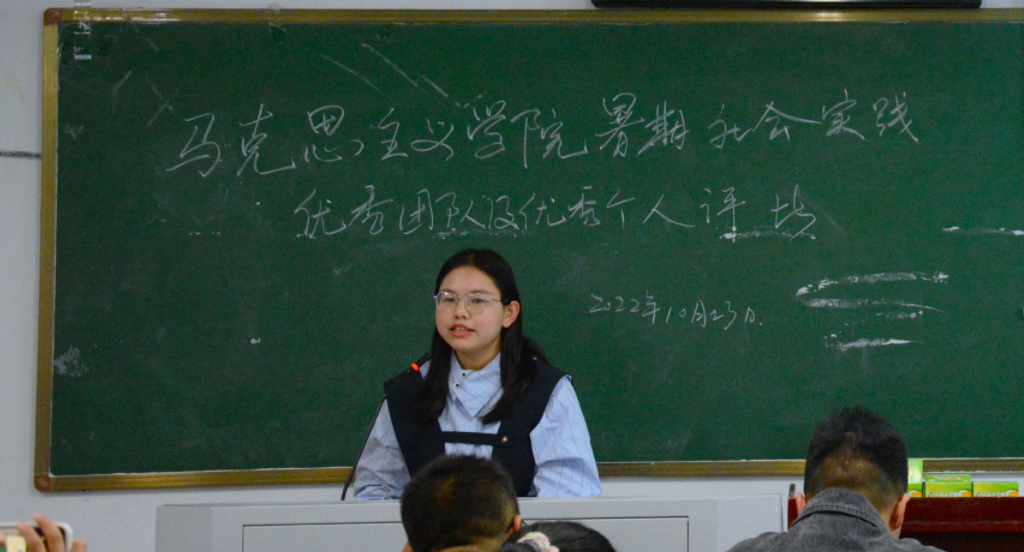 马克思主义学院暑期社会实践
优秀团队及优秀个人评选
2022年10月23日.